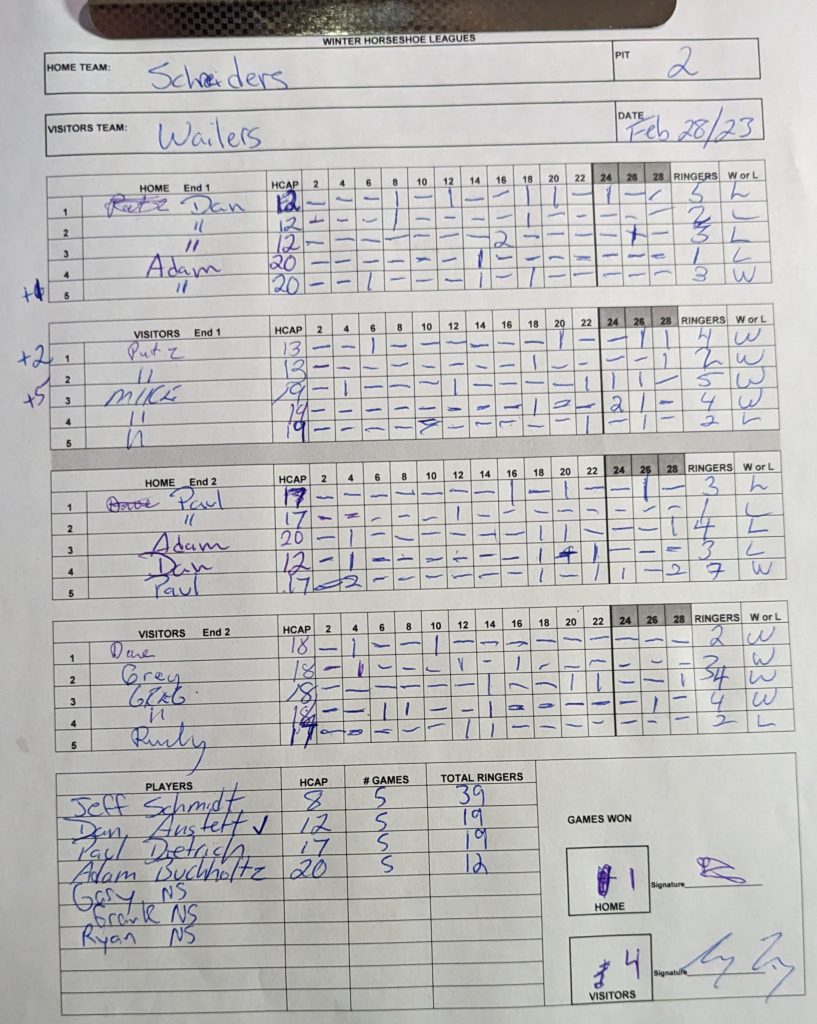 WINTER HORSESHOE LEAGUES
HOME TEAM: Schneiders PIT 2
VISITORS TEAM: Wailers DATE Feb 28/23
HOME End 1 HCAP 2 4 6 8 10 12 14 16 18 20 22 24 26 28 RINGERS W or L
1 Dan 12 - - - 1 - 1 - - 1 1 - 1 - 1 5 L
2 " 12 - - - 1 - - - - 1 - - - - - 2 L
3 " 12 - - - - - - - 2 - - - - 1 - 3 L
4 Adam 20 - - - - - - 1 - - - - - - - 1 L
5 " 20 - - 1 - - - 1 - 1 - - - - - 3 W
VISITORS End 1 HCAP 2 4 6 8 10 12 14 16 18 20 22 24 26 28 RINGERS W or L
+2 1 Putz 13 - - 1 - - - - - - 1 - - 1 1 4 W
2 11 13 - - - - - - - - 1 - - - - 1 2 W
+5 3 MIKE 19 - 1 - - - 1 - - - - 1 1 1 - 5 W
4 11 19 - - - - - - - - 1 - - 2 1 - 4 W
5 11 19 - - - - - - - - - - 1 - 1 - 2 L
HOME End 2 HCAP 2 4 6 8 10 12 14 16 18 20 22 24 26 28 RINGERS W or L
1 Paul 17 - - - - - - - 1 - 1 - - 1 - 3 L
2 " 17 - - - - - 1 - - - - - - - - 1 L
3 Adam 20 - 1 - - - - - - 1 1 - - - 1 4 L
4 Dan 12 - 1 - - - - - - 1 - 1 - - - 3 L
5 Paul 17 - 2 - - - - - - 1 - 1 1 - 2 7 W
VISITORS End 2 HCAP 2 4 6 8 10 12 14 16 18 20 22 24 26 28 RINGERS W or L
1 Dave 18 - 1 - - 1 - - - - - - - - - 2 W
2 Greg 18 - 1 - - - 1 - 1 - - - - - - 3 W
3 GREG 18 - - - - - - 1 - - 1 1 - - 1 4 W
4 11 18 - - 1 1 - - 1 - - - - - 1 - 4 W
5 Rudy - - - - - 1 1 - - - - - - - 2 L
PLAYERS HCAP # GAMES TOTAL RINGERS
Jeff Schmidt 8 5 39
Dan Anstett ✓ 12 5 19
Paul Dietrich 17 5 19
Adam Buchholtz 20 5 12
Gary NS
Frank NS
Ryan NS
GAMES WON
1 Signature
HOME
4 Signature
VISITORS